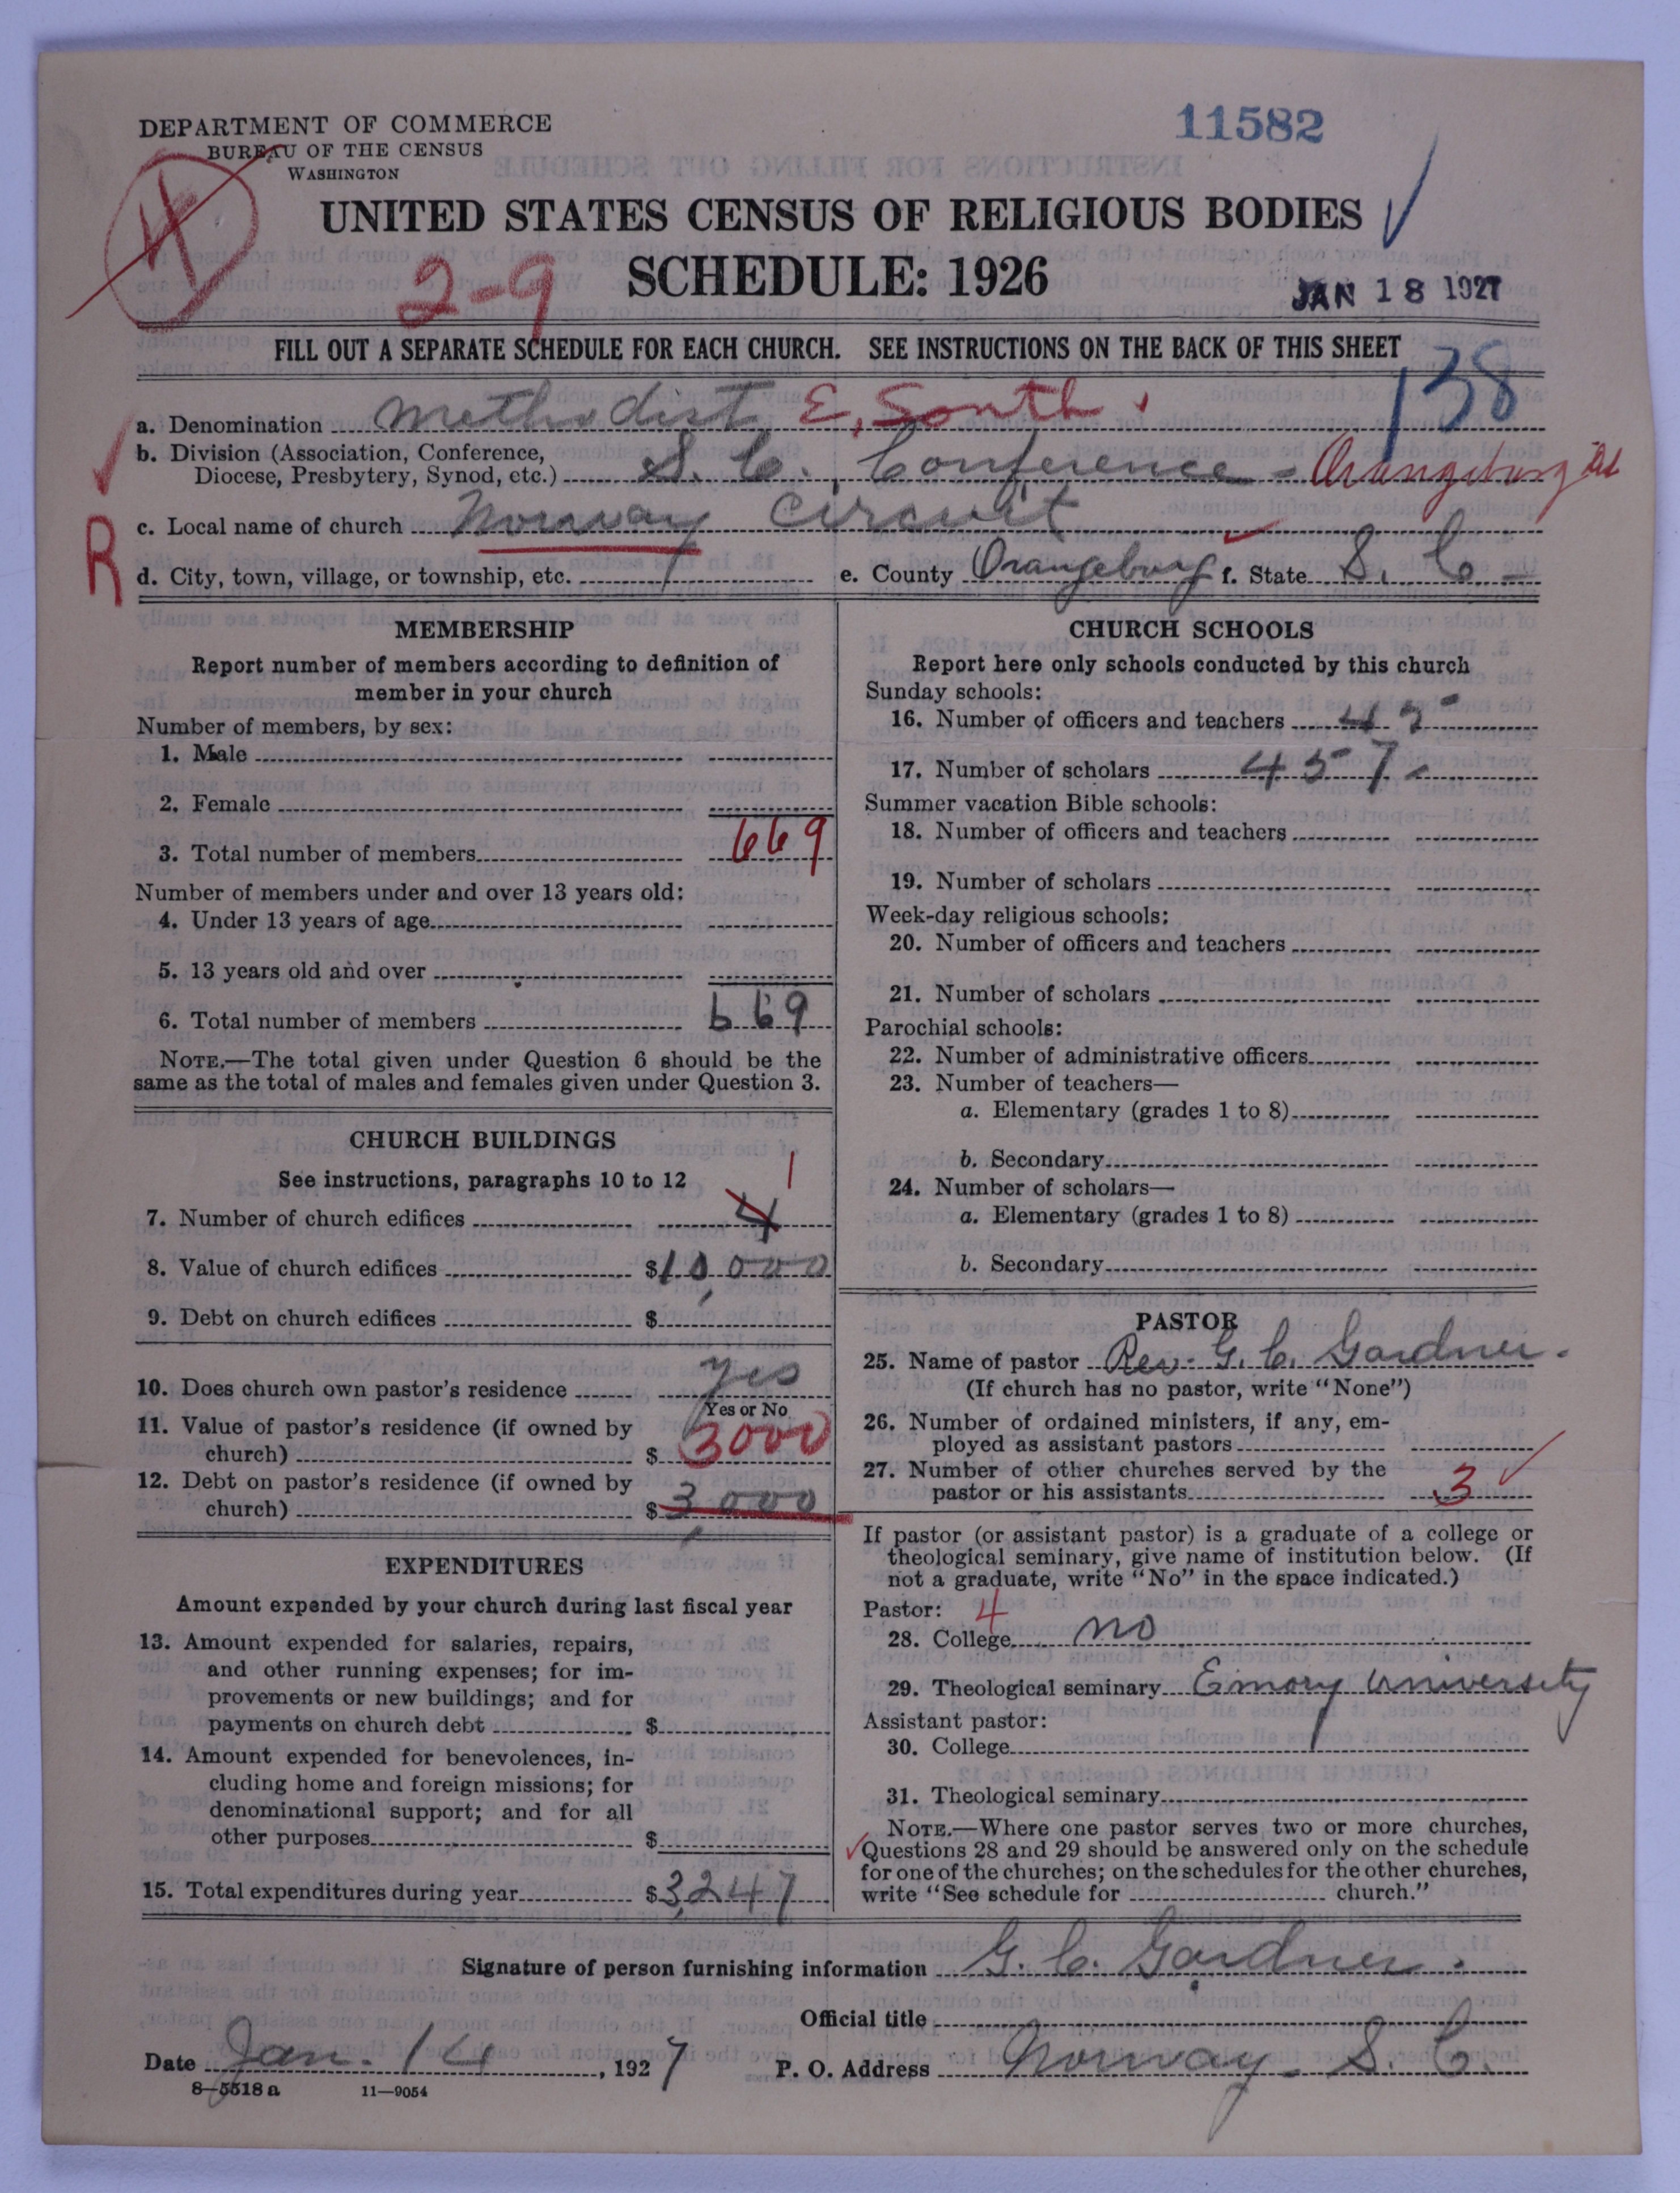 DEPARTMENT OF COMMERCE
BUREAU OF THE CENSUS
WASHINGTON
11582
4
UNITED STATES CENSUS OF RELIGIOUS BODIES
2-9
SCHEDULE: 1926
JAN 18 1927
FILL OUT A SEPARATE SCHEDULE FOR EACH CHURCH. SEE INSTRUCTIONS ON THE BACK OF THIS SHEET
138
a. Denomination Methodist E. South
b. Division (Association, Conference,
Diocese, Presbytery, Synod, etc.) S. C. Conference - Orangeburg
c. Local name of church Norway Circuit
R
d. City, town, village, or township, etc. e. County Orangeburg f. State S. C.
MEMBERSHIP
Report number of members according to definition of
member in your church
Number of members, by sex:
1. Male
2. Female
3. Total number of members 669
Number of members under and over 13 years old:
4. Under 13 years of age
5. 13 years old and over
6. Total number of members 669
NOTE.—The total given under Question 6 should be the
same as the total of males and females given under Question 3.
CHURCH BUILDINGS
See instructions, paragraphs 10 to 12
1
7. Number of church edifices 4
8. Value of church edifices $10,000
9. Debt on church edifices $
10. Does church own pastor's residence Yes
Yes or No
11. Value of pastor's residence (if owned by
church) $ 3000
12. Debt on pastor's residence (if owned by
church) $ 3,000
EXPENDITURES
Amount expended by your church during last fiscal year
13. Amount expended for salaries, repairs,
and other running expenses; for im-
provements or new buildings; and for
payments on church debt $
14. Amount expended for benevolences, in-
cluding home and foreign missions; for
denominational support; and for all
other purposes $
15. Total expenditures during year $3,247
CHURCH SCHOOLS
Report here only schools conducted by this church
Sunday schools:
16. Number of officers and teachers
17. Number of scholars 457
Summer vacation Bible schools:
18. Number of officers and teachers
19. Number of scholars
Week-day religious schools:
20. Number of officers and teachers
21. Number of scholars
Parochial schools:
22. Number of administrative officers
23. Number of teachers—
a. Elementary (grades 1 to 8)
b. Secondary
24. Number of scholars—
a. Elementary (grades 1 to 8)
b. Secondary
PASTOR
25. Name of pastor Rev. G. C. Gardner.
(If church has no pastor, write "None")
26. Number of ordained ministers, if any, em-
ployed as assistant pastors
27. Number of other churches served by the
pastor or his assistants 3
If pastor (or assistant pastor) is a graduate of a college or
theological seminary, give name of institution below. (If
not a graduate, write "No" in the space indicated.)
Pastor: 4
28. College no
29. Theological seminary Emory University
Assistant pastor:
30. College
31. Theological seminary
NOTE.—Where one pastor serves two or more churches,
Questions 28 and 29 should be answered only on the schedule
for one of the churches; on the schedules for the other churches,
write "See schedule for church."
Signature of person furnishing information G. C. Gardner.
Official title
Date Jan. 14, 1927 P. O. Address Norway - S. C.
8-5518 a 11-9054